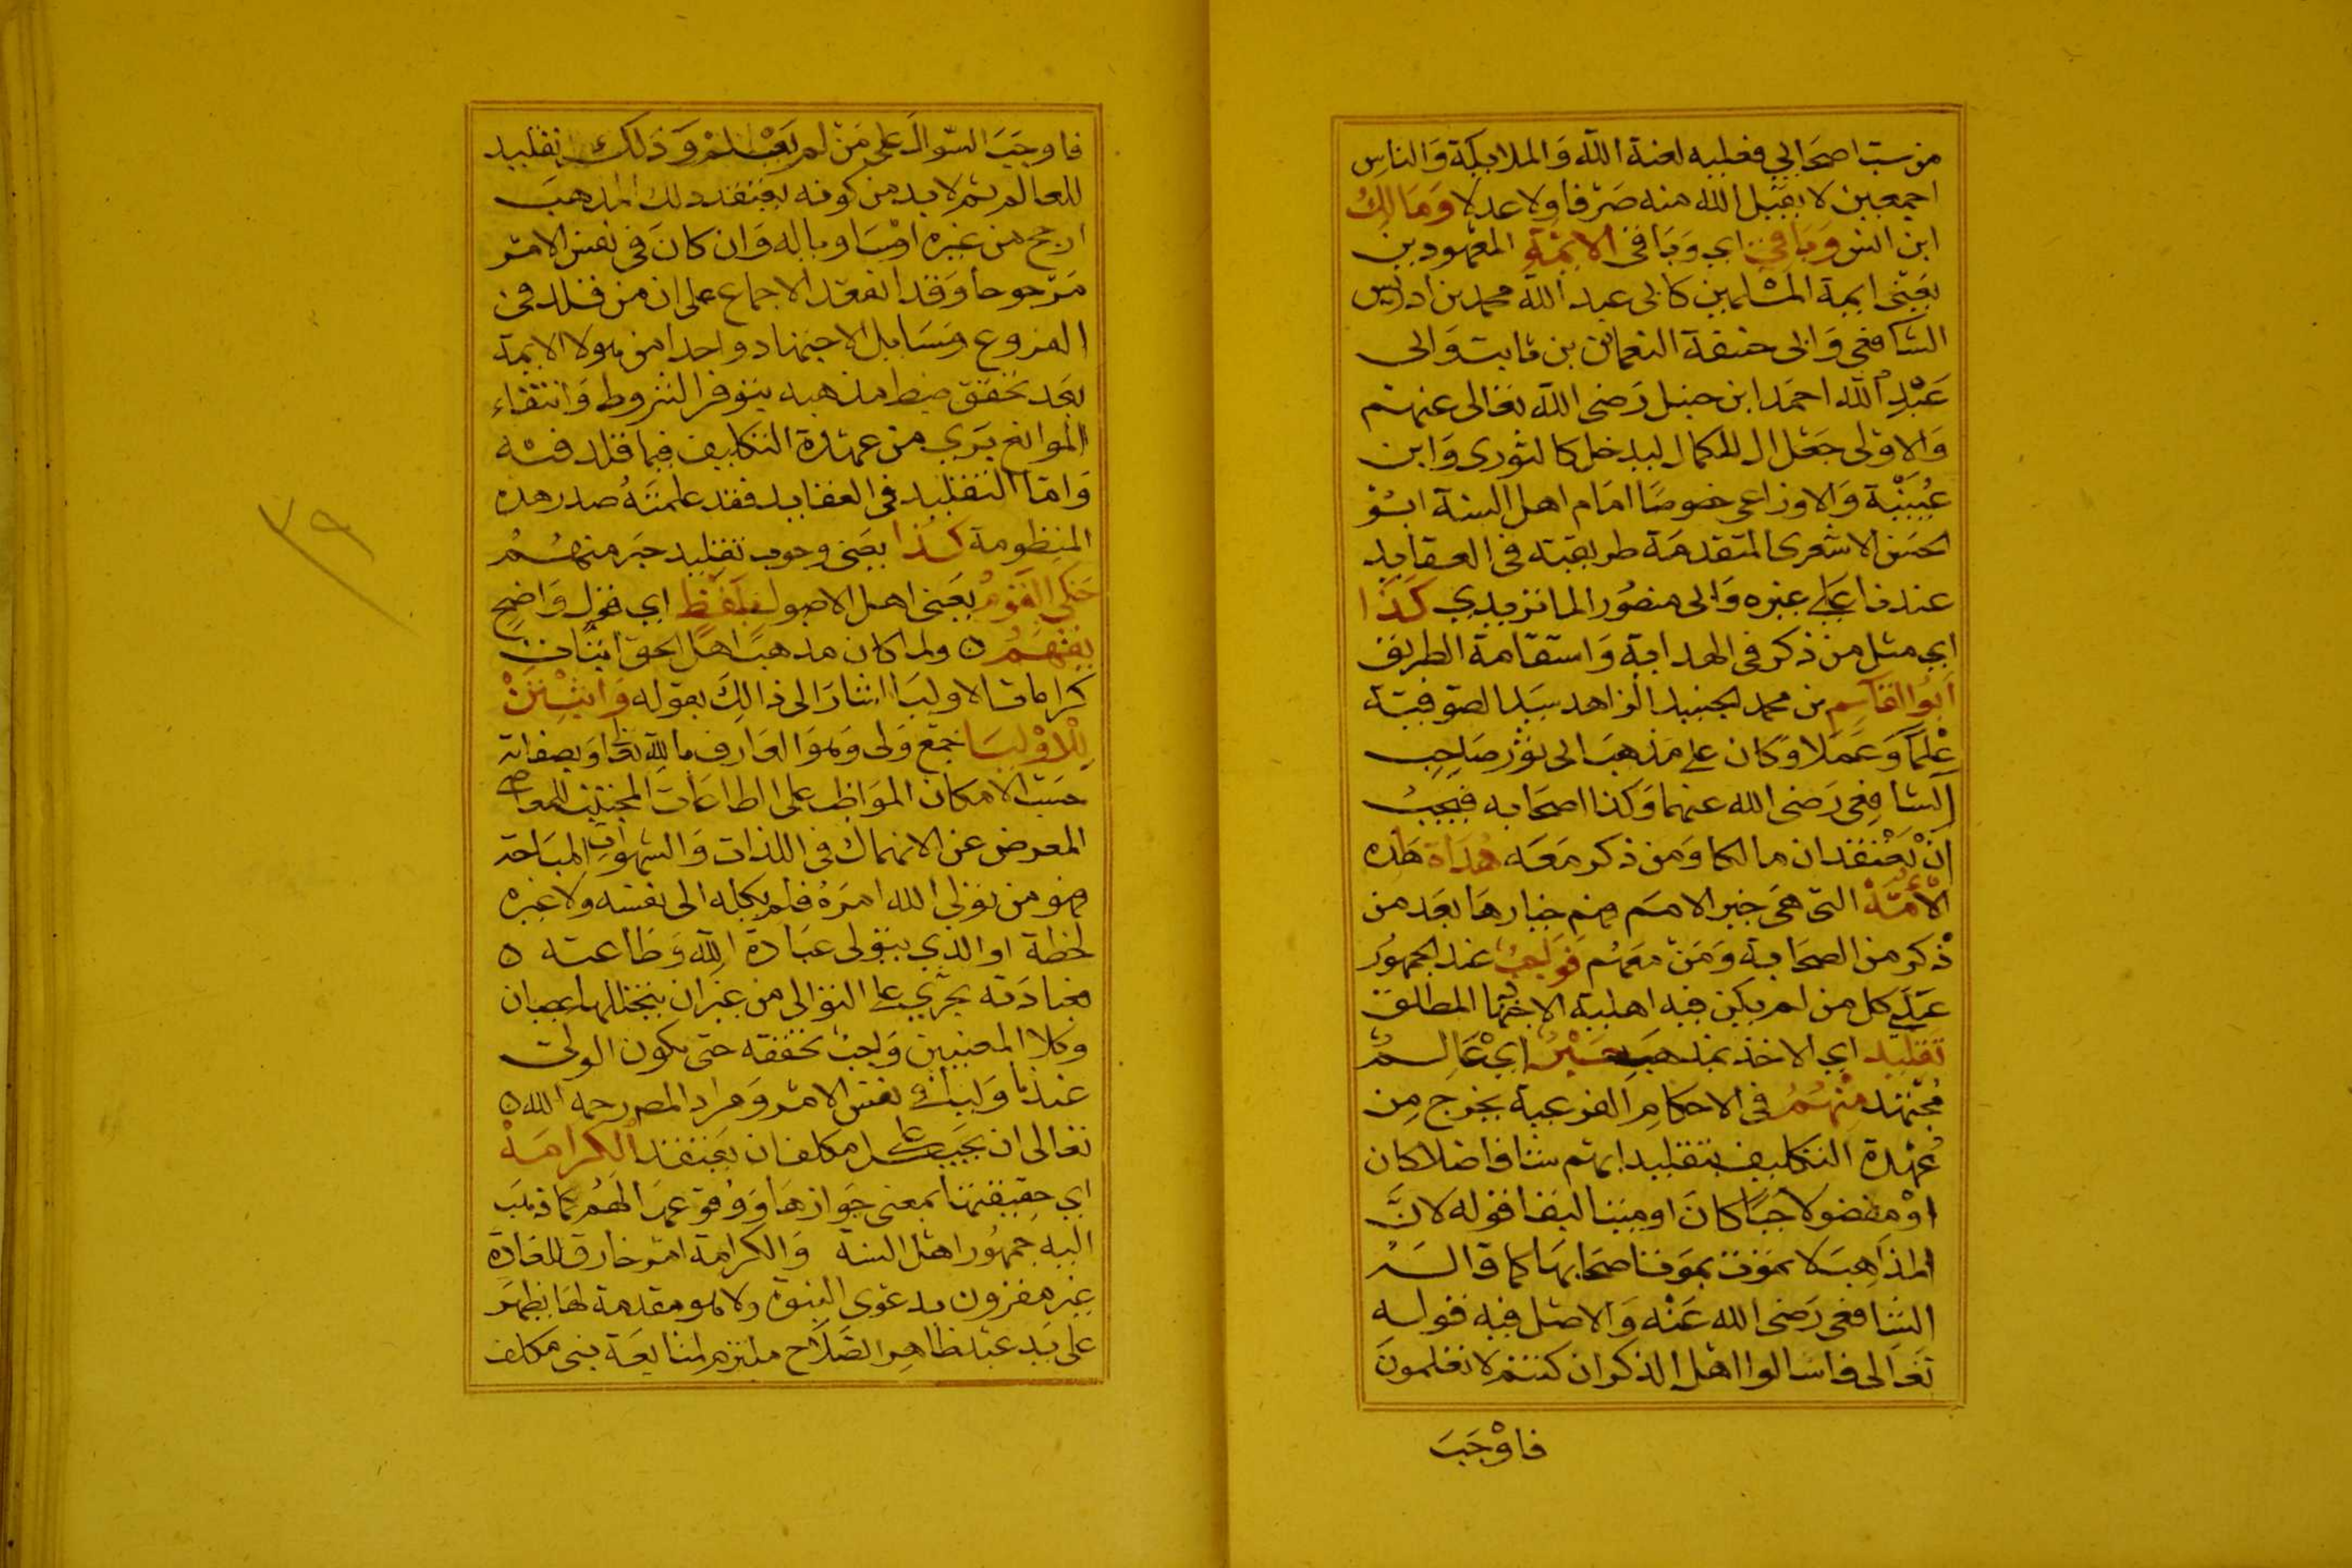 من سب اصحابي فعليه لعنة الله وَالملايكة وَالناسِ
اجمعين لا يقبل الله منه صَرْفا ولا عدلا وَمَالِكُ
ابن انس وَبَاقي اي وَبَاقى الايمَّةِ المعهودين
يعَنى ايمة المسْلمين كابى عبد الله محمد بن ادريس
الشافعى وَابى حنيفة النعمان بن ثابت وَابى
عَبْدِ الله احمَد ابن حنبل رَضى الله تعَالى عنهم
وَالاوْلى جَعْل ال للكمال ليدخل كالثورى وَابن
عُيَيْنَة وَالاوزاعى خصوصًا امَام اهل السنة ابُوْ
الحسَن الاشعرى المتقدمَة طريقته فى العقايد
عندنا عَلى غيره وَابى منصُور الماتريدي كَذَا
اي مثل من ذكر فى الهداية وَاستقامة الطريق
اَبُو القَاسِم بن محمد الجنيد الزاهد سَيد الصوفيَّة
عِلْمًا وَعَمَلا وَكان على مَذهبَ ابى ثوْر صَاحِبِ
الشافِعى رَضى الله عنهما وَكذا اصحَابه فيجبُ
اَنْ يَعْتقد ان مالكا وَمن ذكر مَعَه هُدَاة هَذه
الاُمَّة التى هىَ خير الامَم فهم خيارهَا بَعد من
ذكر من الصحَابة وَمَنْ مَعَهُم فوَاجِبُ عند الجمهُور
عَلَى كل من لم يكن فيه اهلية الاجتهاد المطلق
تقليد اي الاخذ بمذهَب حَبْرٍ اي عَالِمٌ
مُجْتَهد مِنْهُمُ فى الاحكامِ الفرعية يخرج مِن
عُهْدة التكليف بتقليد ايهم شا فاضلا كان
اوْ مفضولا حيًّا كانَ او ميتا لبقا قوله لانَّ
المذاهبَ لا تموت بموت اصحَابها كما قالَــهُ
الشافعى رَضى الله عَنْه وَالاصْل فيه قوله
تعَالى فاسَالوا اهْل الذكر ان كنتم لا تعْلمونَ
فاوْجَبَ
فاوجَبَ السّوال على مَنْ لم يَعْلمْ وَذلكَ تقليد
للعالم ثم لابد من كونه يعتقد ذلك المذهبَ
ارجح من غيره اوْ مسَاويا له وَان كانَ فى نفس الامْر
مَرْجوحا وَقد انعقد الاجماع على ان من قلد فى
الفروع وَمَسَايل الاجتهاد واحدا من هولا الايمة
بعَد تحقق ضبط مذهبه بتوفر الشروط وَانتفاء
الموانع يَرَي من عهْدة التكليف فيما قلد فيْه
وَامّا التقليد فى العقايد فقد علمتَهُ صدر هده
المنظومة كَذا بمَعْنى وجوب تقليد حبَر منهُمُ
حَكى القوْمُ يعَنى اهل الاصول بِلَفْظٍ اي قوْلٍ وَاضحٍ
يفْهَمُ ه ولما كان مذهبَ اهل الحق اثبَات
كرامات الاوليَا اشارَ الى ذالِكَ بقوله وَاَثْبِتَنْ
لِلْاوْلِيَا جمْع وَلى وَهوَ العَارف بالله تعَالى وَبصفاته
حسَب الامكان الموَاظب على الطاعَات المجتنب للمعاصى
المعرض عن الانهماك فى اللذات وَالشهوات المبَاحَة
فهو من توَلى الله امرَهُ فلم يكله الى نفسه ولا غيره
لحَظة او الذي يتوَلى عبَادة الله وَطاعته ه
فعبادَته تجرْي على التوَالى من غير ان يتخللها عصيان
وكلا المعنيين وَاجب تحققه حتى يكون الولى
عندنا وَليا فى نفس الامْر وَمراد المصر رحمه الله ه
تعَالى ان يجَب على كل مكلف ان يَعتقد الكرامَة
اي حقيقتهَا بمعنى جَوازهَا وَوُقوعهَا لهَمُ كما ذهَبَ
اليه جمهُور اهل السنة وَالكرامة امرْ خارق للعادة
غير مقرون بدعوى النبوّة ولا هو مقدمة لهَا يظهر
على يَد عبْد ظاهِر الصَلاح ملتزم لمتابعَة نبى مكلف
٣٩